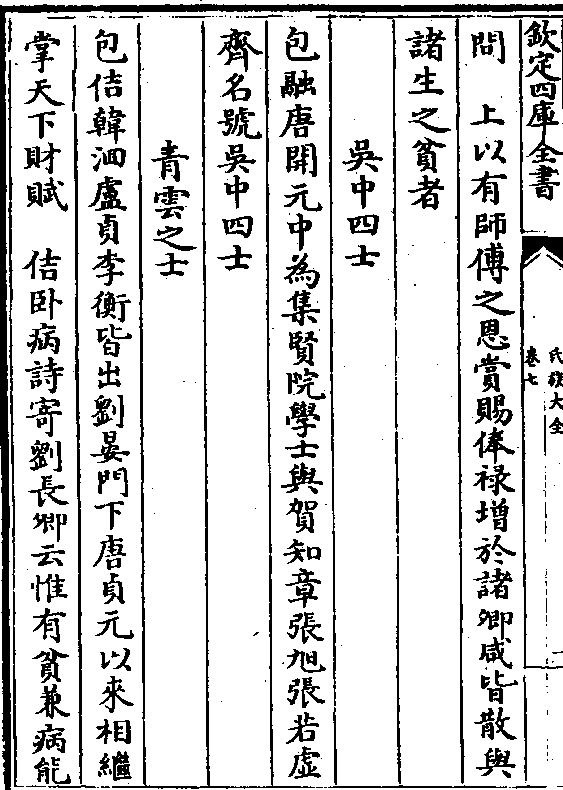 欽定四庫全書
氏族大全
卷七
問　上以有師傅之恩賞賜俸祿增於諸卿咸皆散與
諸生之貧者
吳中四士
包融唐開元中為集賢院學士與賀知章張旭張若虛
齊名號吳中四士
青雲之士
包佶韓洄盧貞李衡皆出劉晏門下唐貞元以來相繼
掌天下財賦　佶卧病詩寄劉長卿云惟有貧兼病能